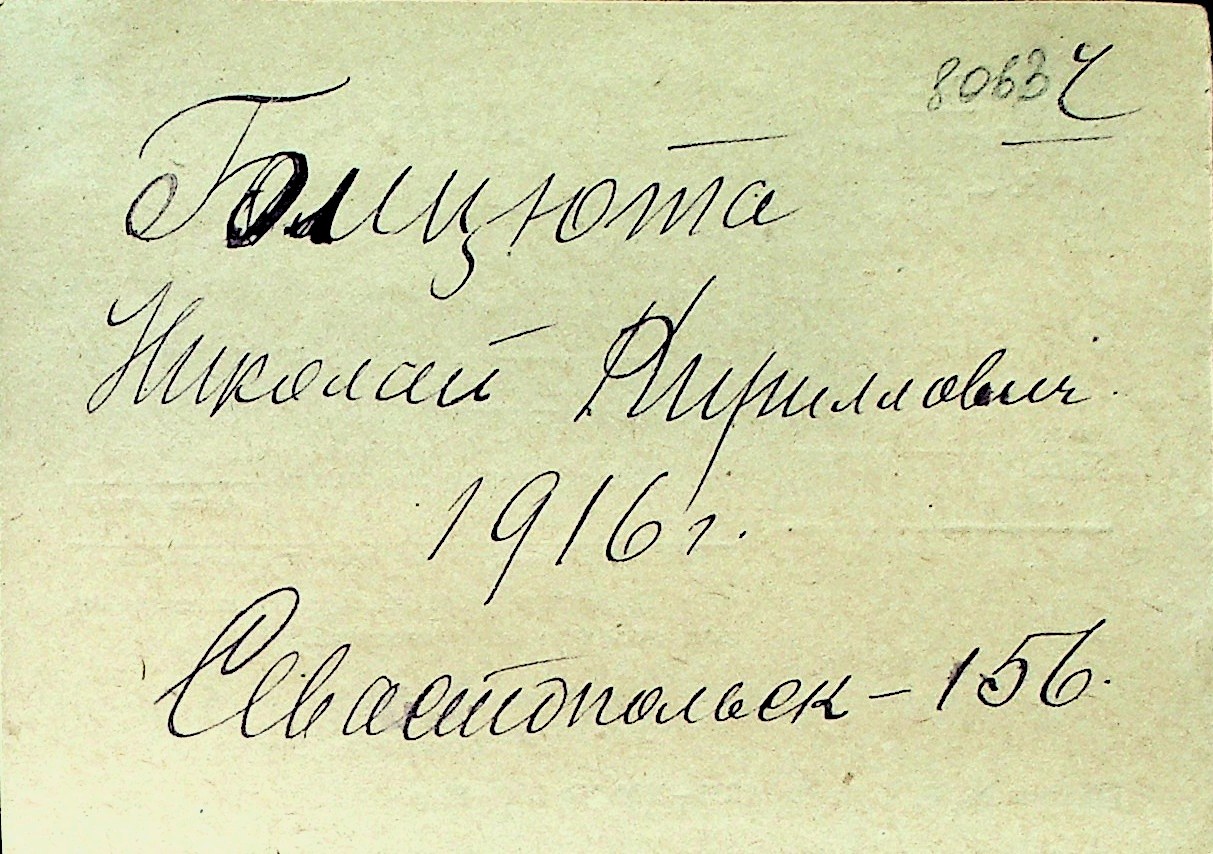 80637
Гомцюта
Николай Кириллович
1916 г.
Севастопольск – 156.